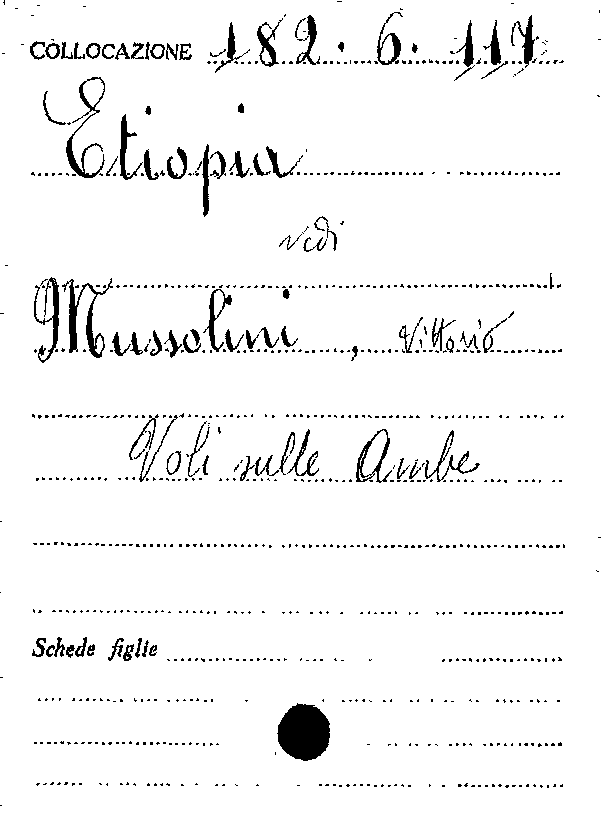 COLLOCAZIONE 182. 6. 117
Etiopia
vedi
Mussolini, Vittorio
Voli sulle Ambe
Schede figlie